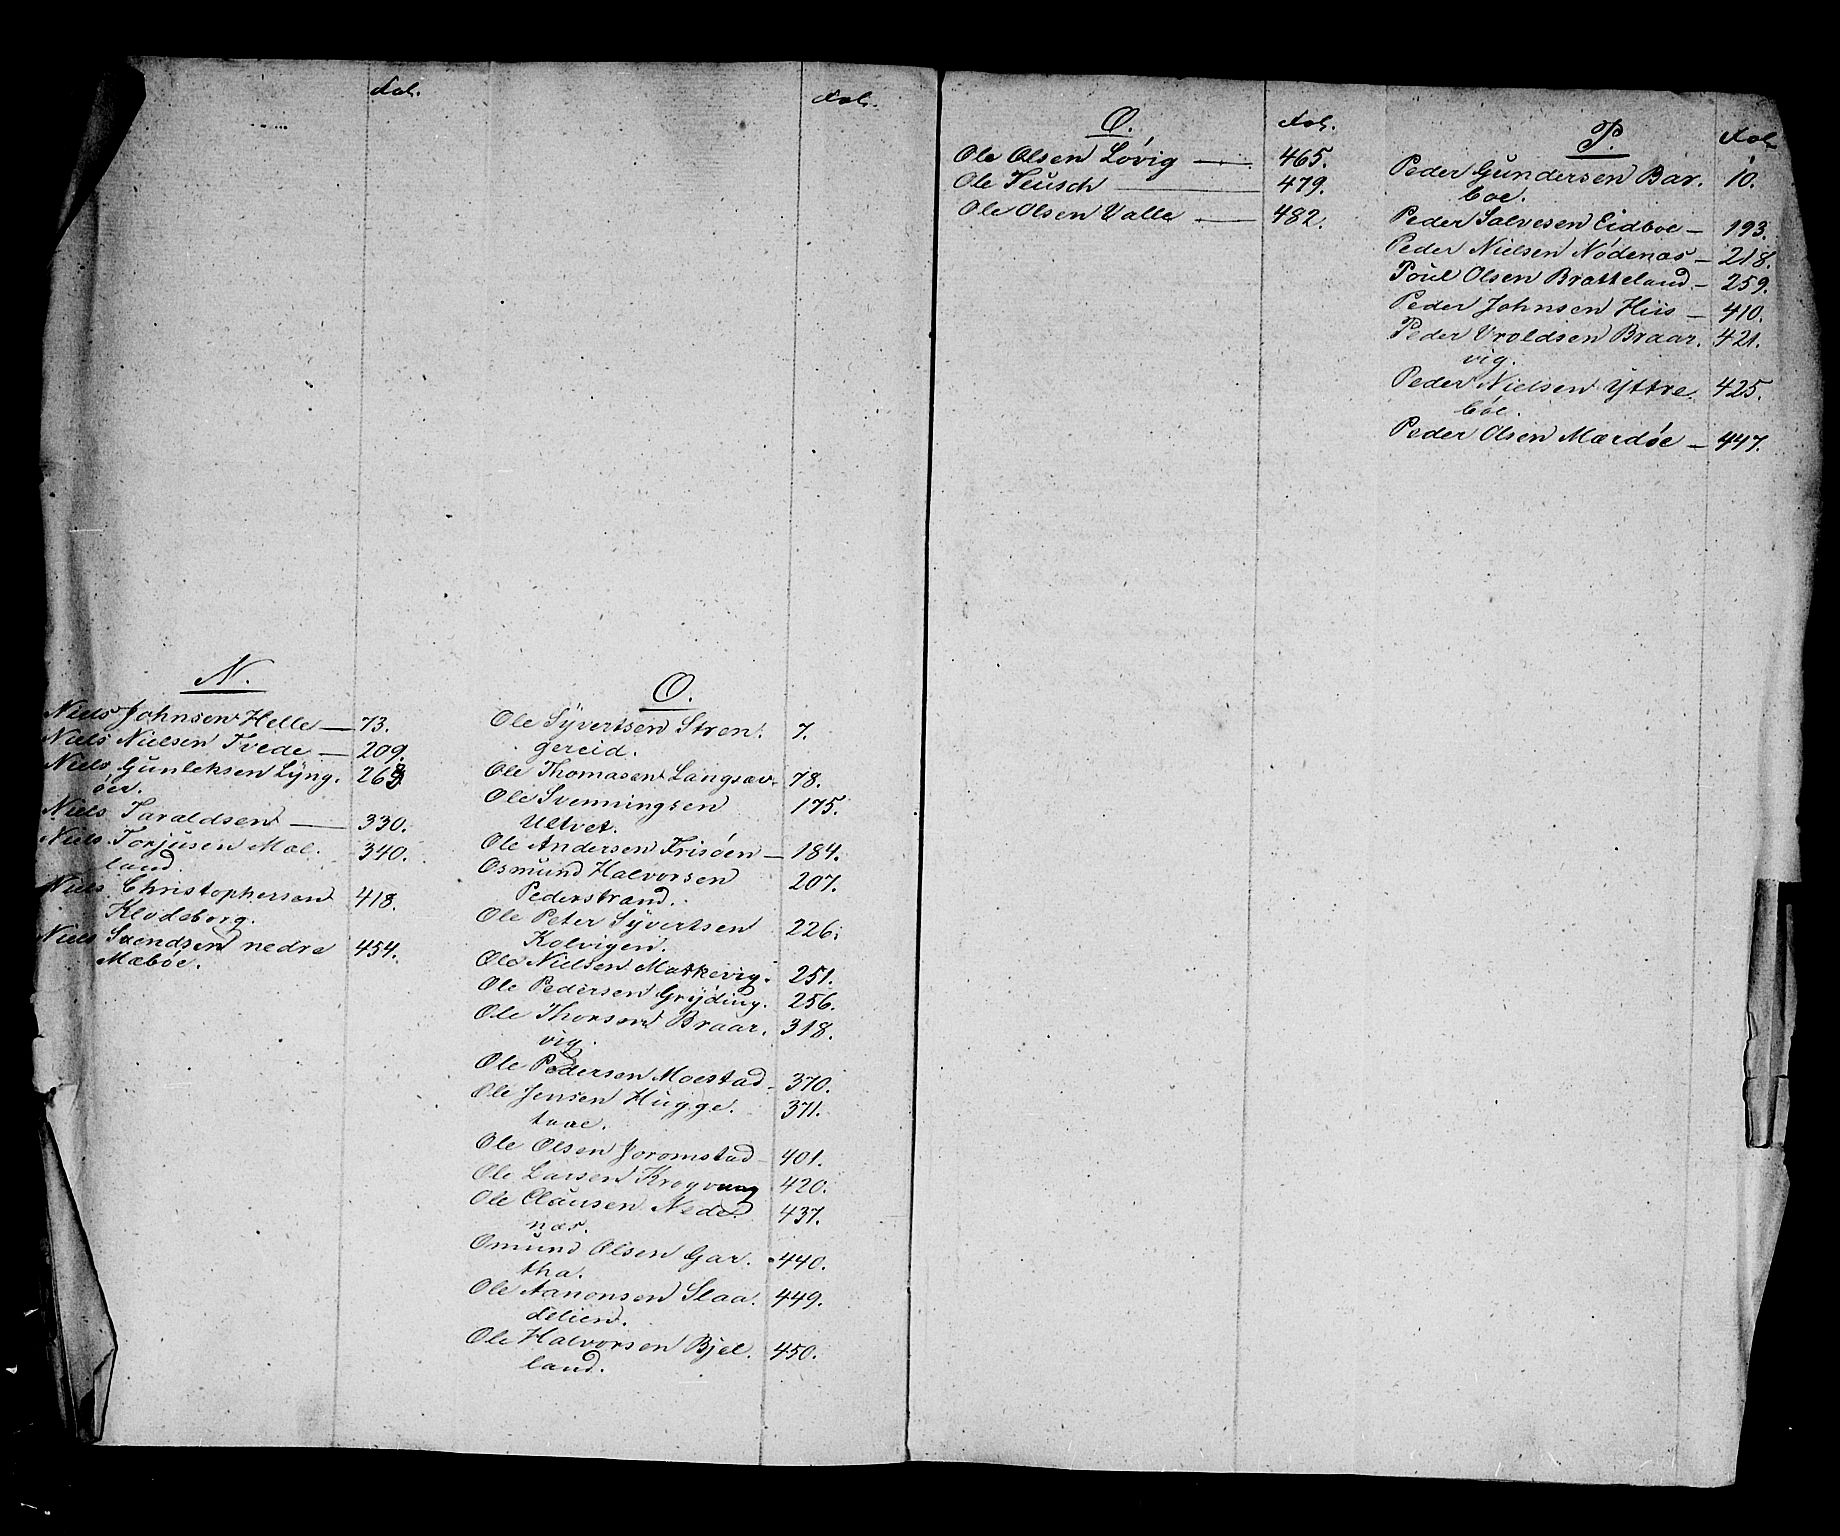 Fol.
N.
Niels Johnsen Helle — 73.
Niels Nielsen Tvede — 209.
Niels Gunleksen Lÿng. 268
öer.
Niels Taraldsen — 330.
Niels Torjusen Mæl. 340.
land.
Niels Christophersen 418.
Klodeborg.
Niels Svendsen nedre 454.
Mæbøe.
Fol.
O.
Ole Sÿvertsen Stren. 7.
gereid.
Ole Thomasen Langsæv. 78.
Ole Svenningsen 175.
Ultvet.
Ole Andersen Frisöen — 184.
Osmund Halvorsen 207.
Pederstrand.
Ole Peter Sÿvertsen 226.
Kolvigen.
Ole Nielsen Matkevig. 251.
Ole Pedersen Grÿding. 256.
Ole Thorsen Braar. 318.
vig.
Ole Pedersen Moestad 370.
Ole Jensen Hugge. 371.
tvae.
Ole Olsen Joromstad 401.
Ole Larsen Krogvaag 420.
Ole Clausen Nede. 437.
næs.
Omund Olsen Gar. 440.
tha.
Ole Aanonsen Slaa. 449.
delien.
Ole Halvorsen Bjel. 450.
land.
O. Fol.
Ole Olsen Lövig — 465.
Ole Teusch — 479.
Ole Olsen Valle — 482.
P. Fol.
Peder Gundersen Bar. 10.
boe.
Peder Salvesen Eidboe — 193.
Peder Nielsen Nödenæs — 218.
Poul Olsen Bratteland — 259.
Peder Johnsen Hiis — 410.
Peder Vroldsen Braar. 421.
vig.
Peder Nielsen Yttre. 425.
böe.
Peder Olsen Mærdöe — 447.